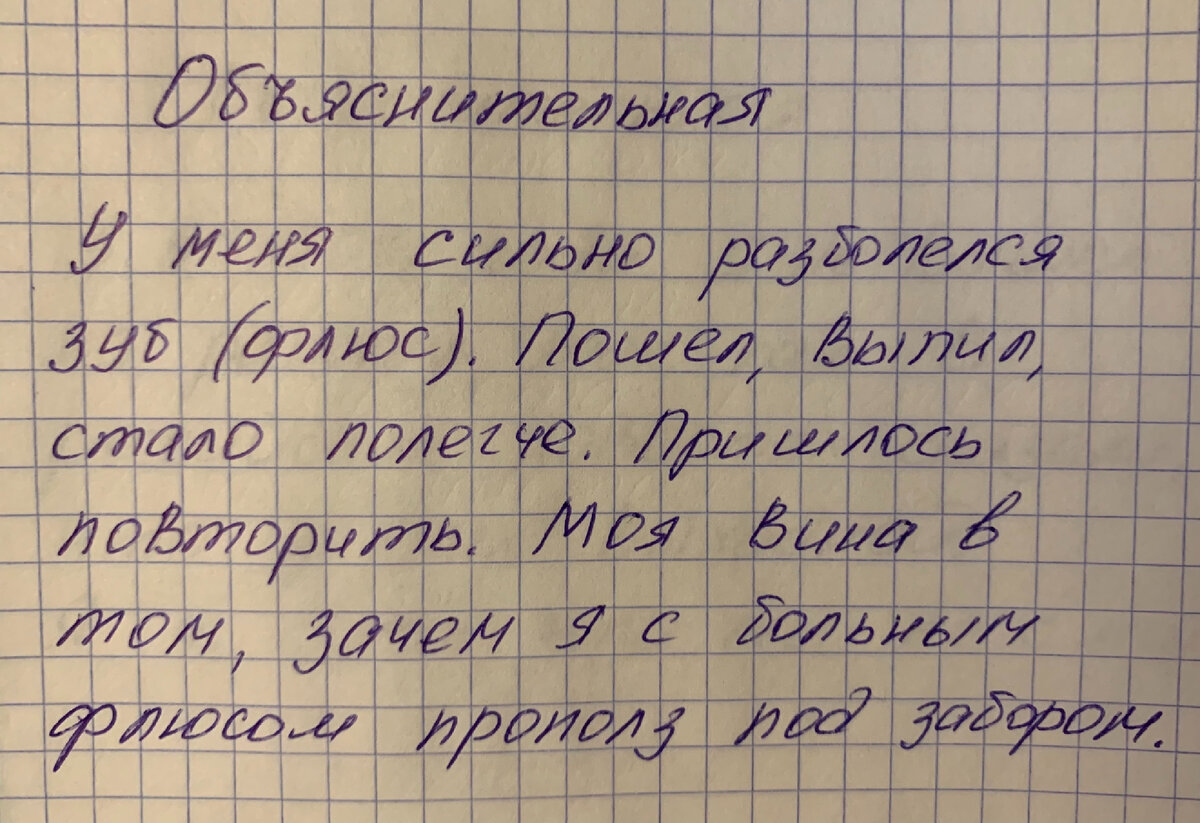 Объяснительная
У меня сильно разболелся
зуб (флюс). Пошел, выпил,
стало полегче. Пришлось
повторить. Моя вина в
том, зачем я с больным
флюсом прополз под забором.